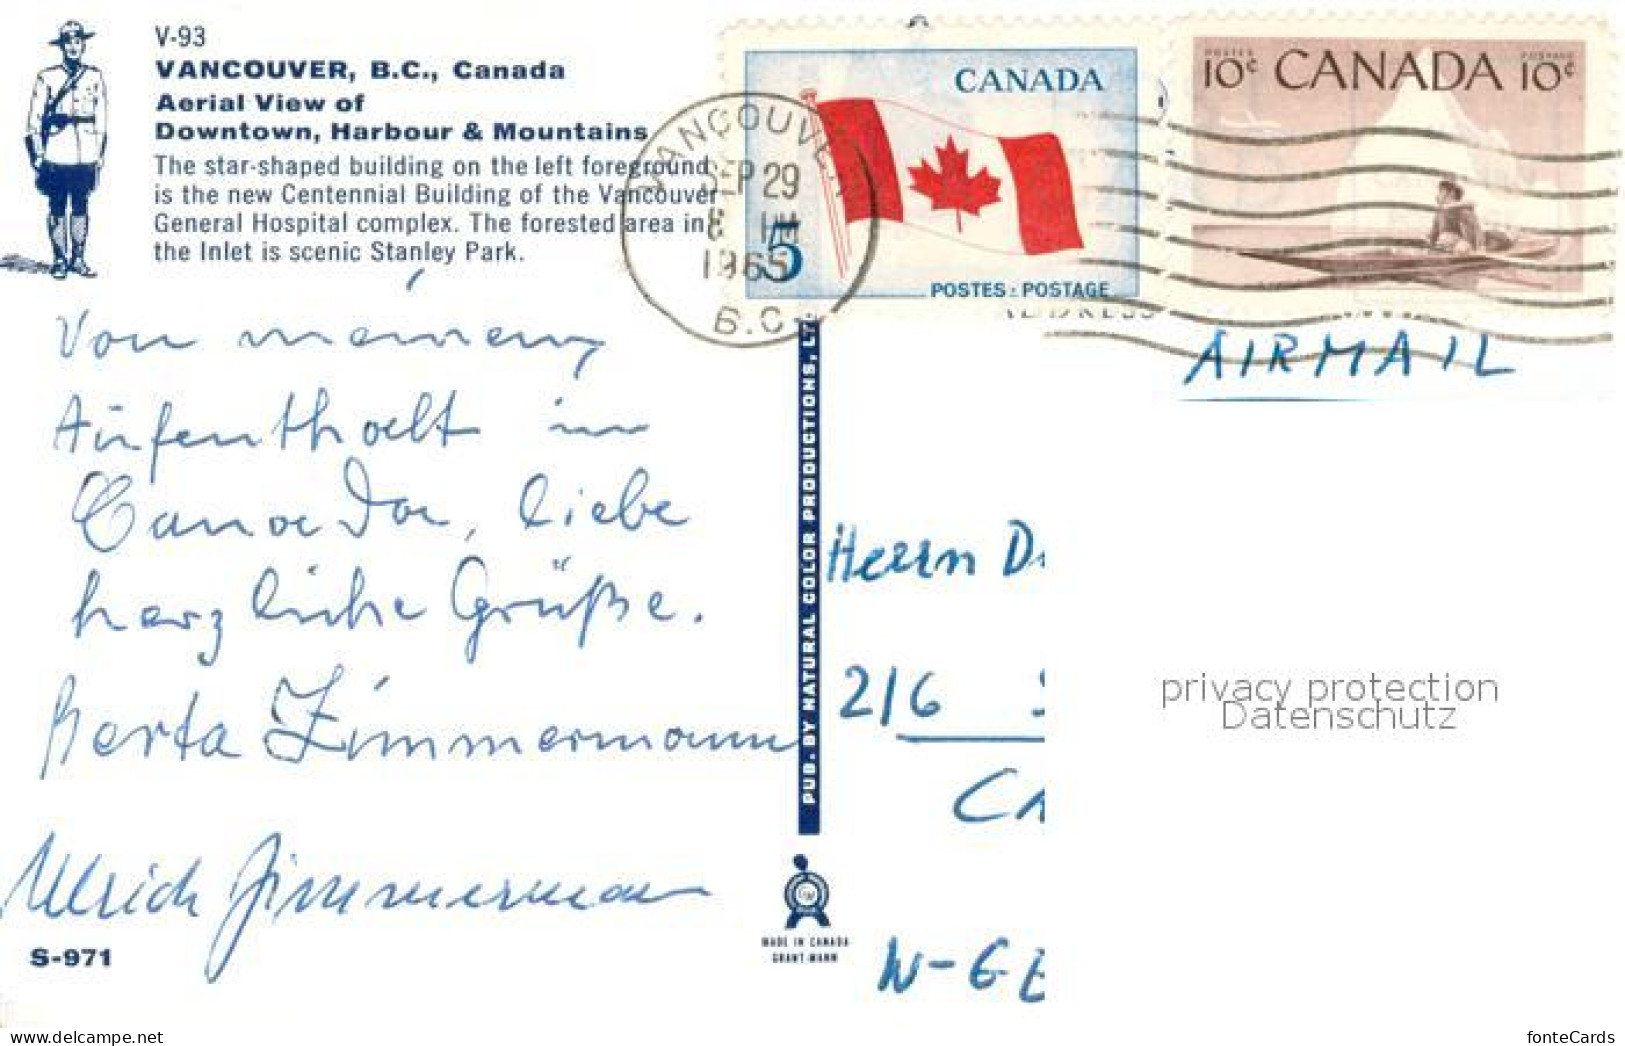 V-93
VANCOUVER, B.C., Canada
Aerial View of
Downtown, Harbour & Mountains
The star-shaped building on the left foreground
is the new Centennial Building of the Vancouver
General Hospital complex. The forested area in
the Inlet is scenic Stanley Park.
CANADA
5
POSTES : POSTAGE
POSTES
10¢ CANADA 10¢
POSTAGE
VANCOUVER
SEP 29
1965
B.C.
AIRMAIL
Von meinem
Aufenthalt in
Canada, liebe
herzliche Grüße.
Berta Zimmermann
Ulrich Zimmermann
S-971
PUB. BY NATURAL COLOR PRODUCTIONS, LT
MADE IN CANADA
GRANT-MANN
Herrn D
216 S
CA
W-GE
privacy protection
Datenschutz
www.delcampe.net
fonteCards